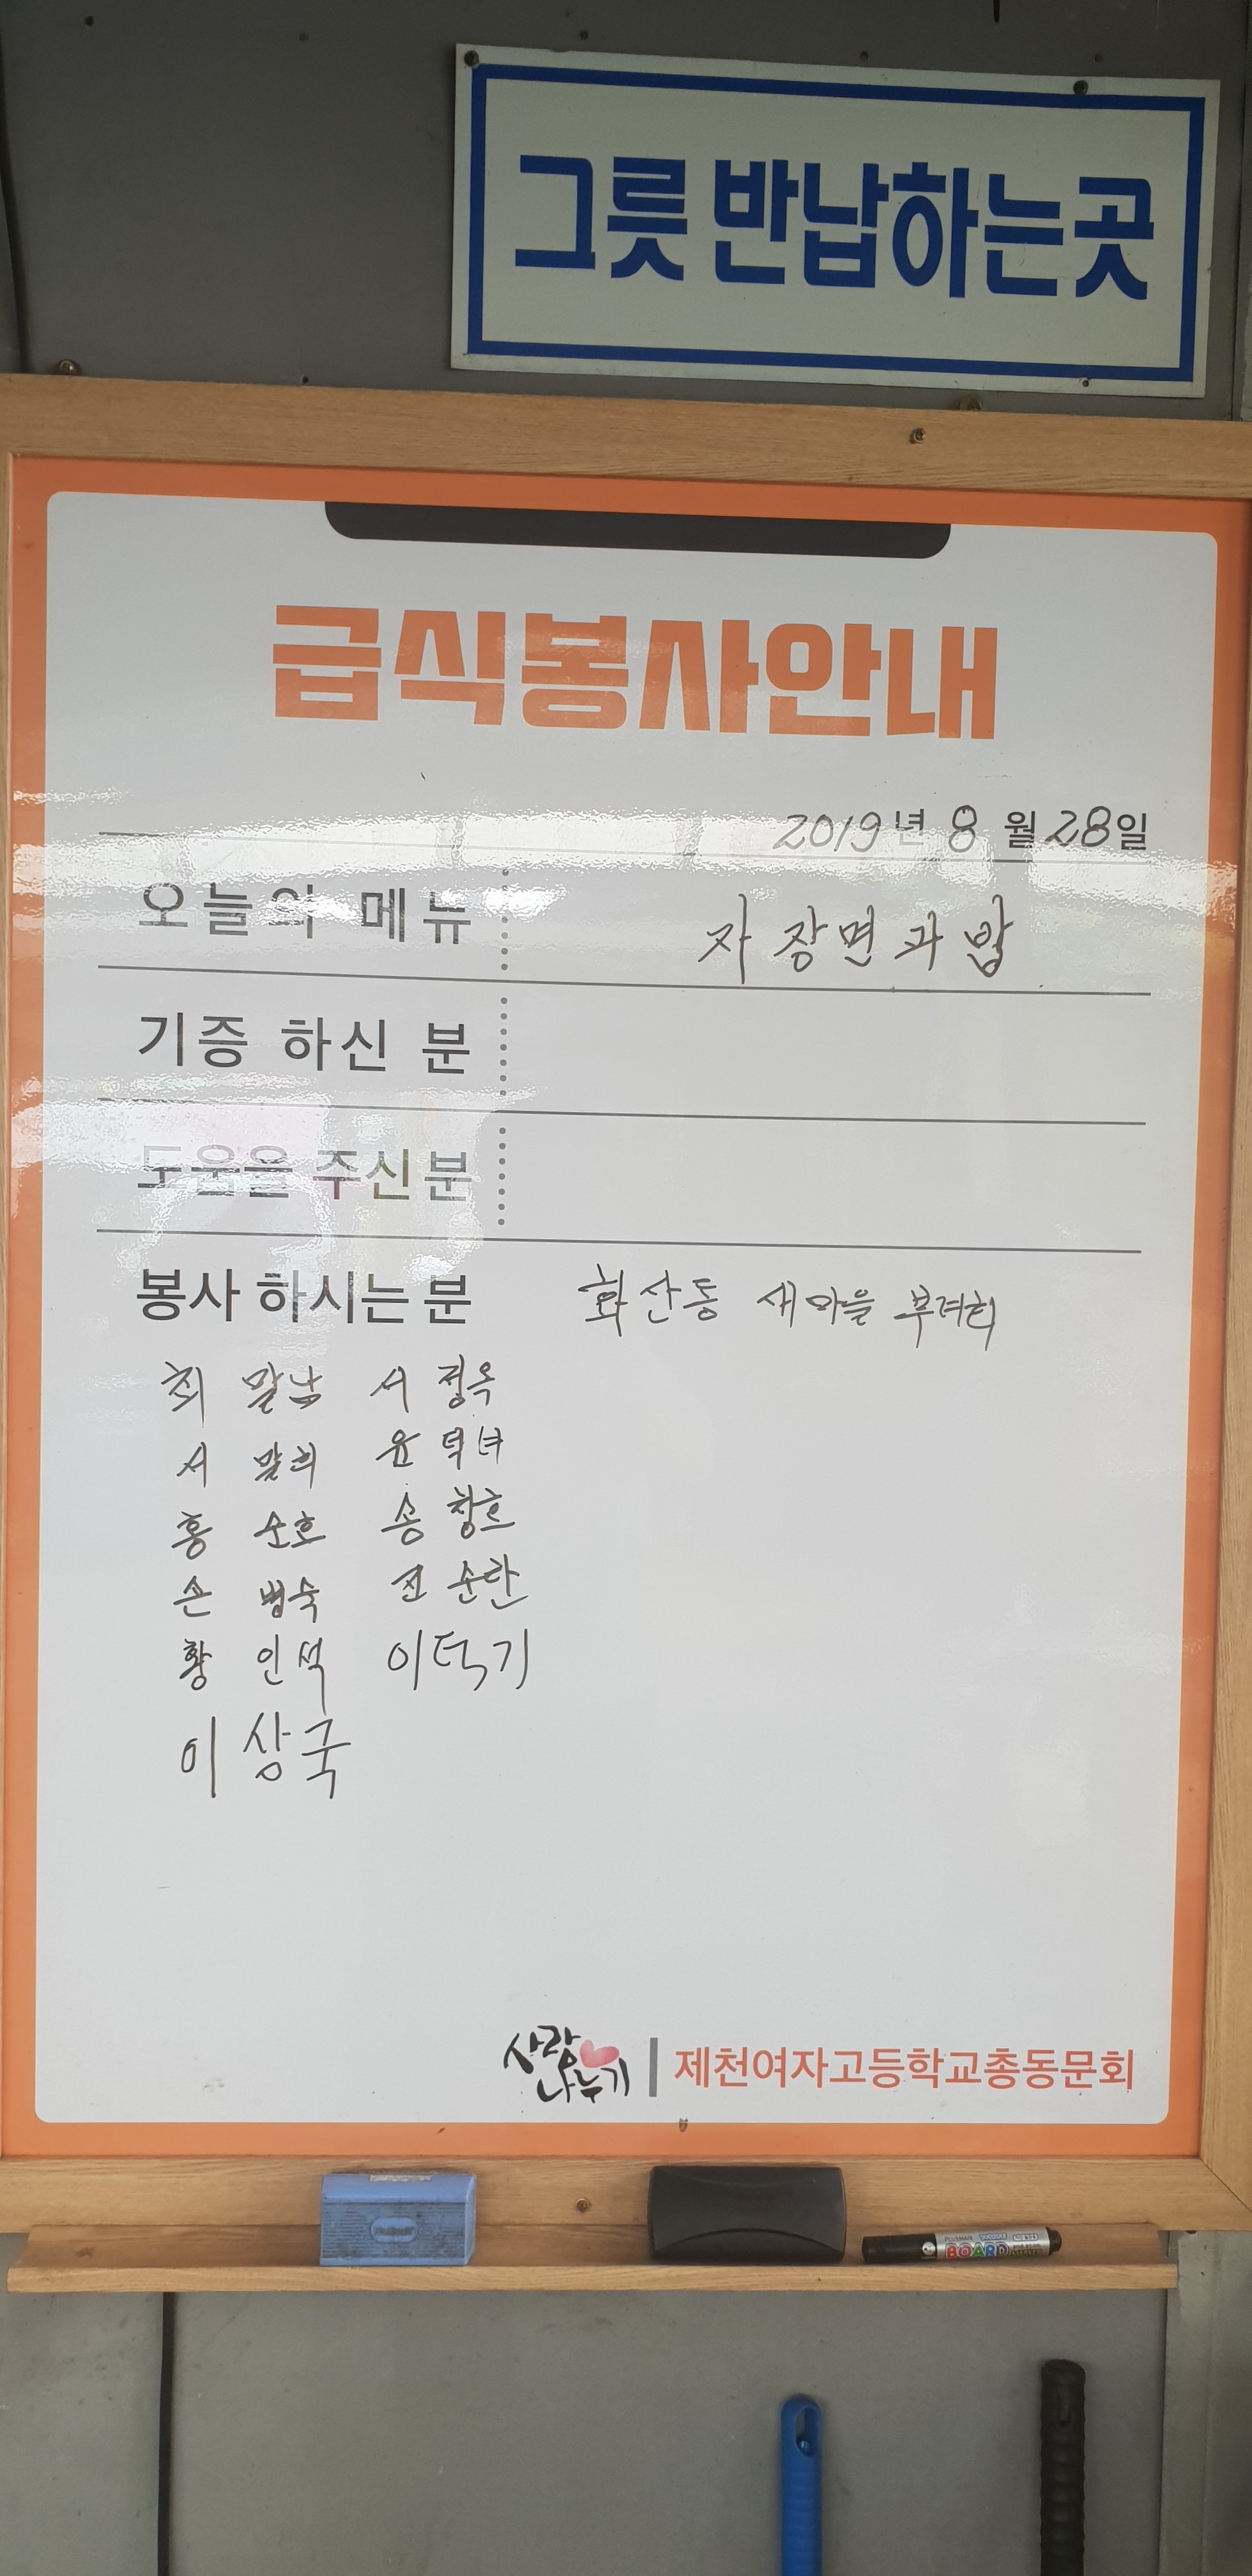 그릇 반납하는곳
급식봉사안내
2019년 8월 28일
오늘의 메뉴 자장면과 밥
기증 하신 분
도움을 주신분
봉사 하시는분 화산동 새마을 부녀회
최 말남 서 정옥
서 말희 윤 덕녀
홍 순호 송 창호
손 병숙 전 순란
황 인석 이덕기
이상국
사랑나누기 제천여자고등학교총동문회
BOARD